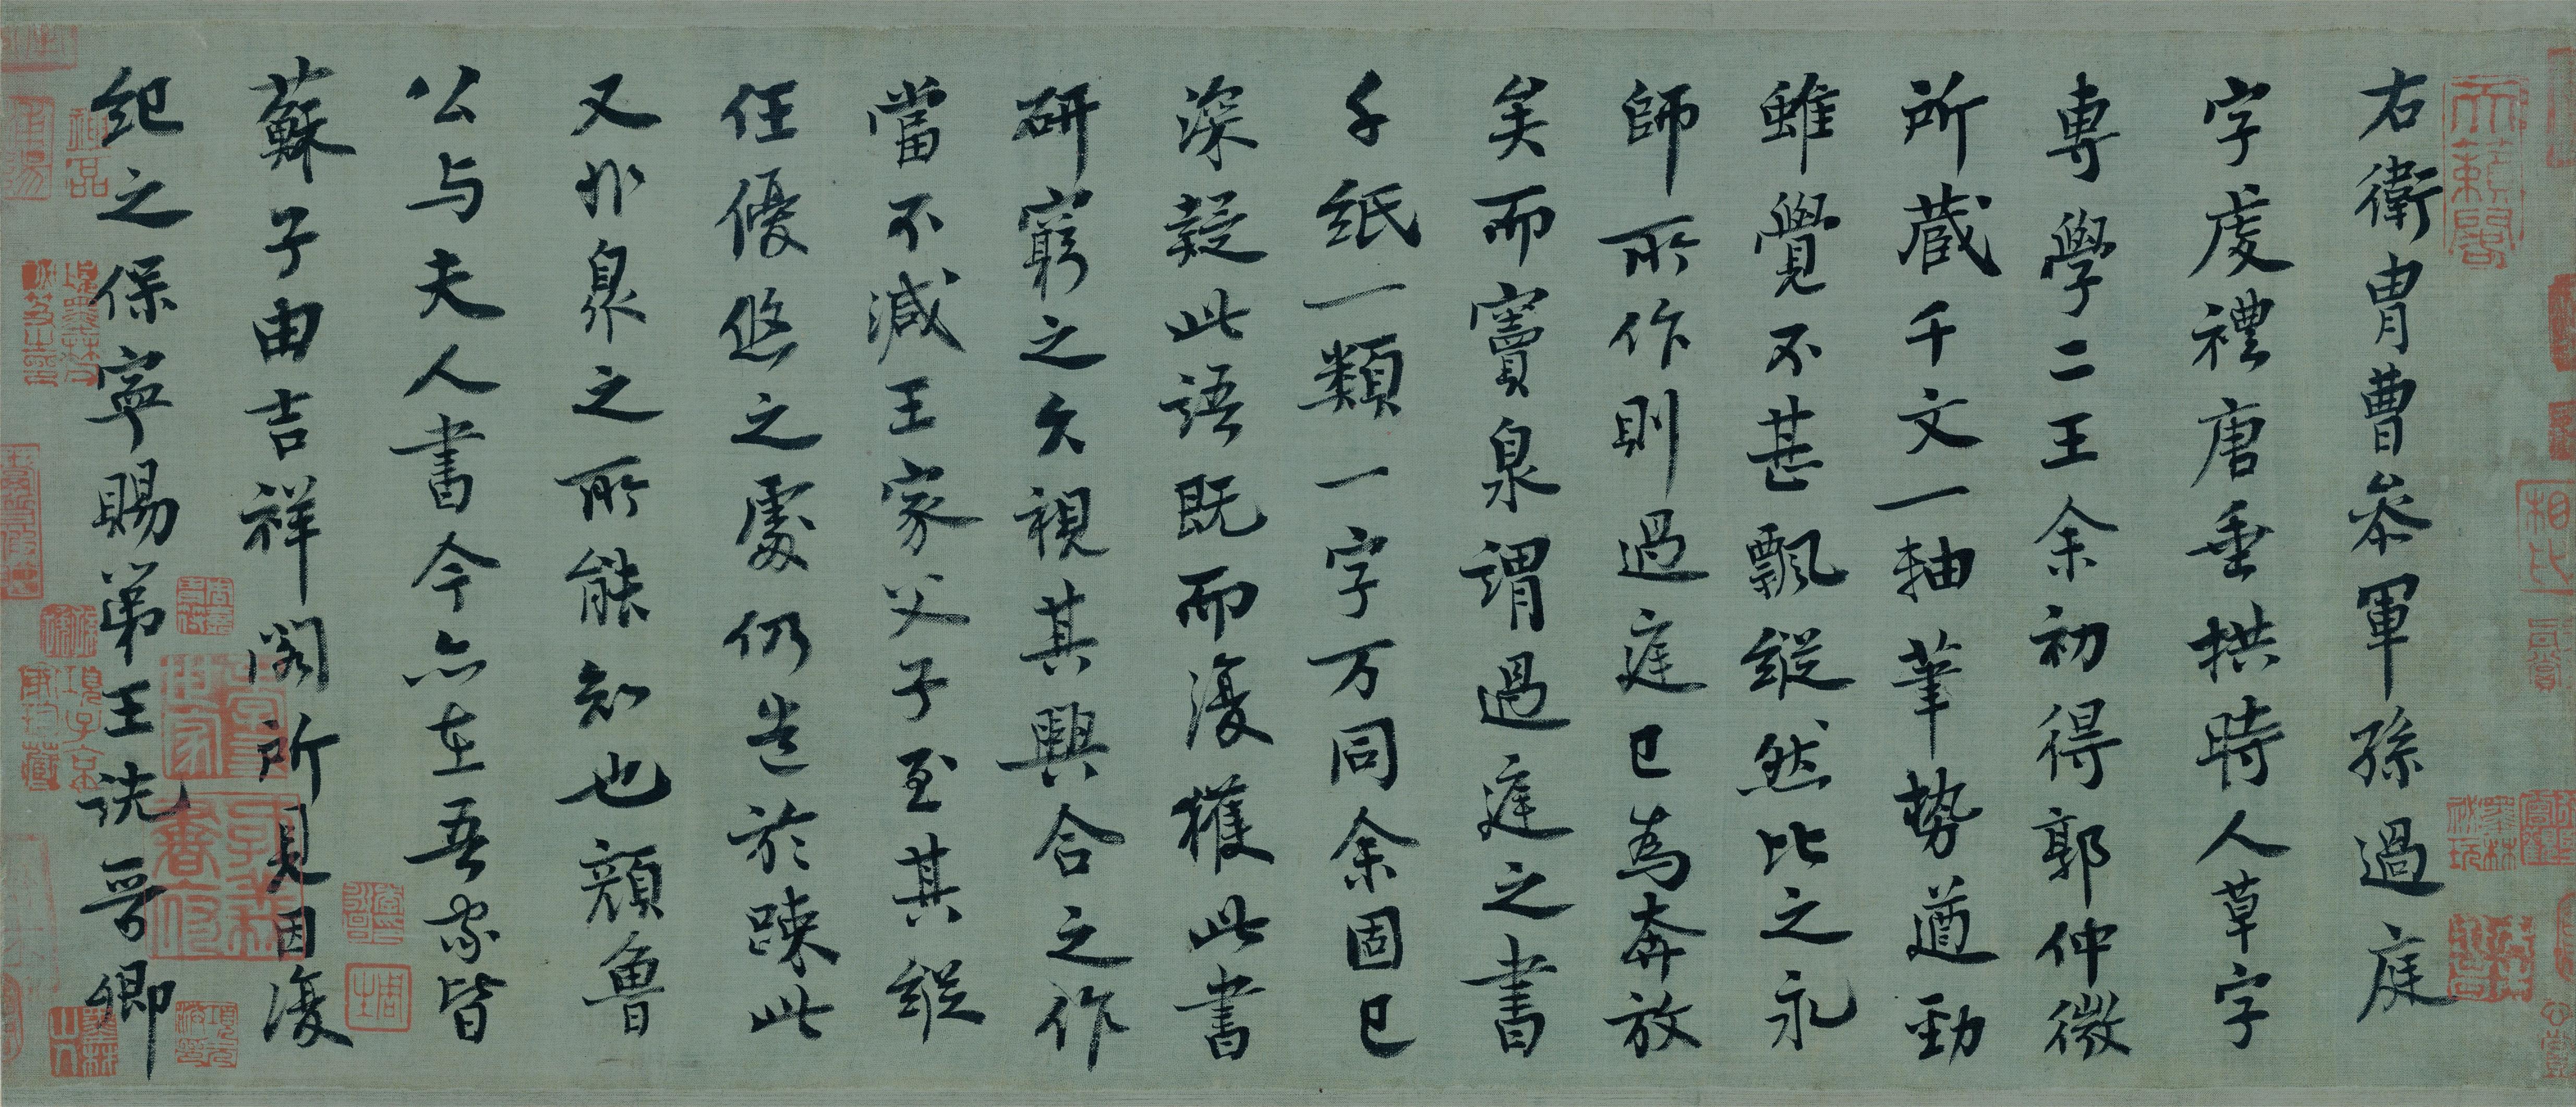 右衛胄曹參軍孫過庭
字虔禮唐垂拱時人草字
專學二王余初得郭仲微
所藏千文一軸筆勢遒勁
雖覺不甚飄縱然比之永
師所作則過庭已為奔放
矣而竇泉謂過庭之書
千紙一類一字万同余固已
深疑此語既而復獲此書
研窮之久視其興合之作
當不減王家父子至其縱
任優悠之處仍造於踈此
又非泉之所能知也顏魯
公与夫人書今亦在吾家皆
蘇子由吉祥閣所見因復
紀之保寧賜弟王詵晉卿